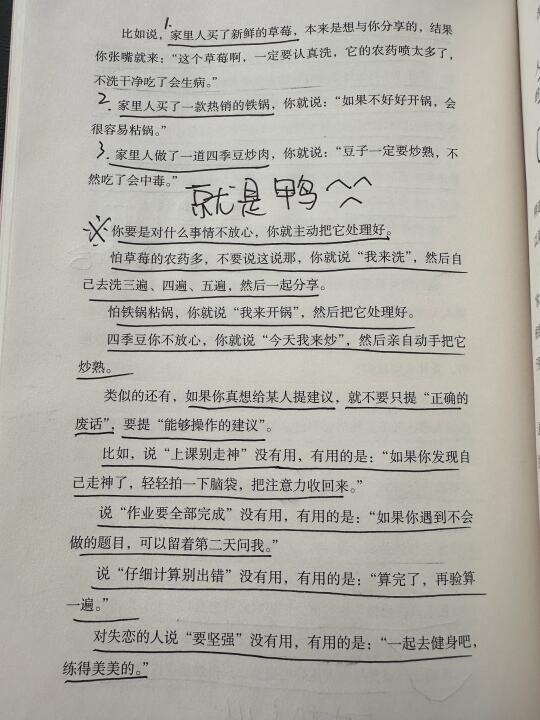 1.
比如说，家里人买了新鲜的草莓，本来是想与你分享的，结果
你张嘴就来：“这个草莓啊，一定要认真洗，它的农药喷太多了，
不洗干净吃了会生病。”
2. 家里人买了一款热销的铁锅，你就说：“如果不好好开锅，会
很容易粘锅。”
3. 家里人做了一道四季豆炒肉，你就说：“豆子一定要炒熟，不
然吃了会中毒。”
就是鸭^^
※你要是对什么事情不放心，你就主动把它处理好。
怕草莓的农药多，不要说这说那，你就说“我来洗”，然后自
己去洗三遍、四遍、五遍，然后一起分享。
怕铁锅粘锅，你就说“我来开锅”，然后把它处理好。
四季豆你不放心，你就说“今天我来炒”，然后亲自动手把它
炒熟。
类似的还有，如果你真想给某人提建议，就不要只提“正确的
废话”，要提“能够操作的建议”。
比如，说“上课别走神”没有用，有用的是：“如果你发现自
己走神了，轻轻拍一下脑袋，把注意力收回来。”
说“作业要全部完成”没有用，有用的是：“如果你遇到不会
做的题目，可以留着第二天问我。”
说“仔细计算别出错”没有用，有用的是：“算完了，再验算
一遍。”
对失恋的人说“要坚强”没有用，有用的是：“一起去健身吧，
练得美美的。”